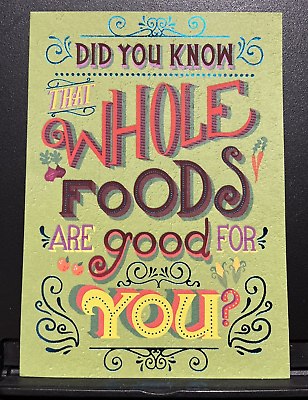 DID YOU KNOW
THAT
WHOLE
FOODS
ARE good FOR
YOU?